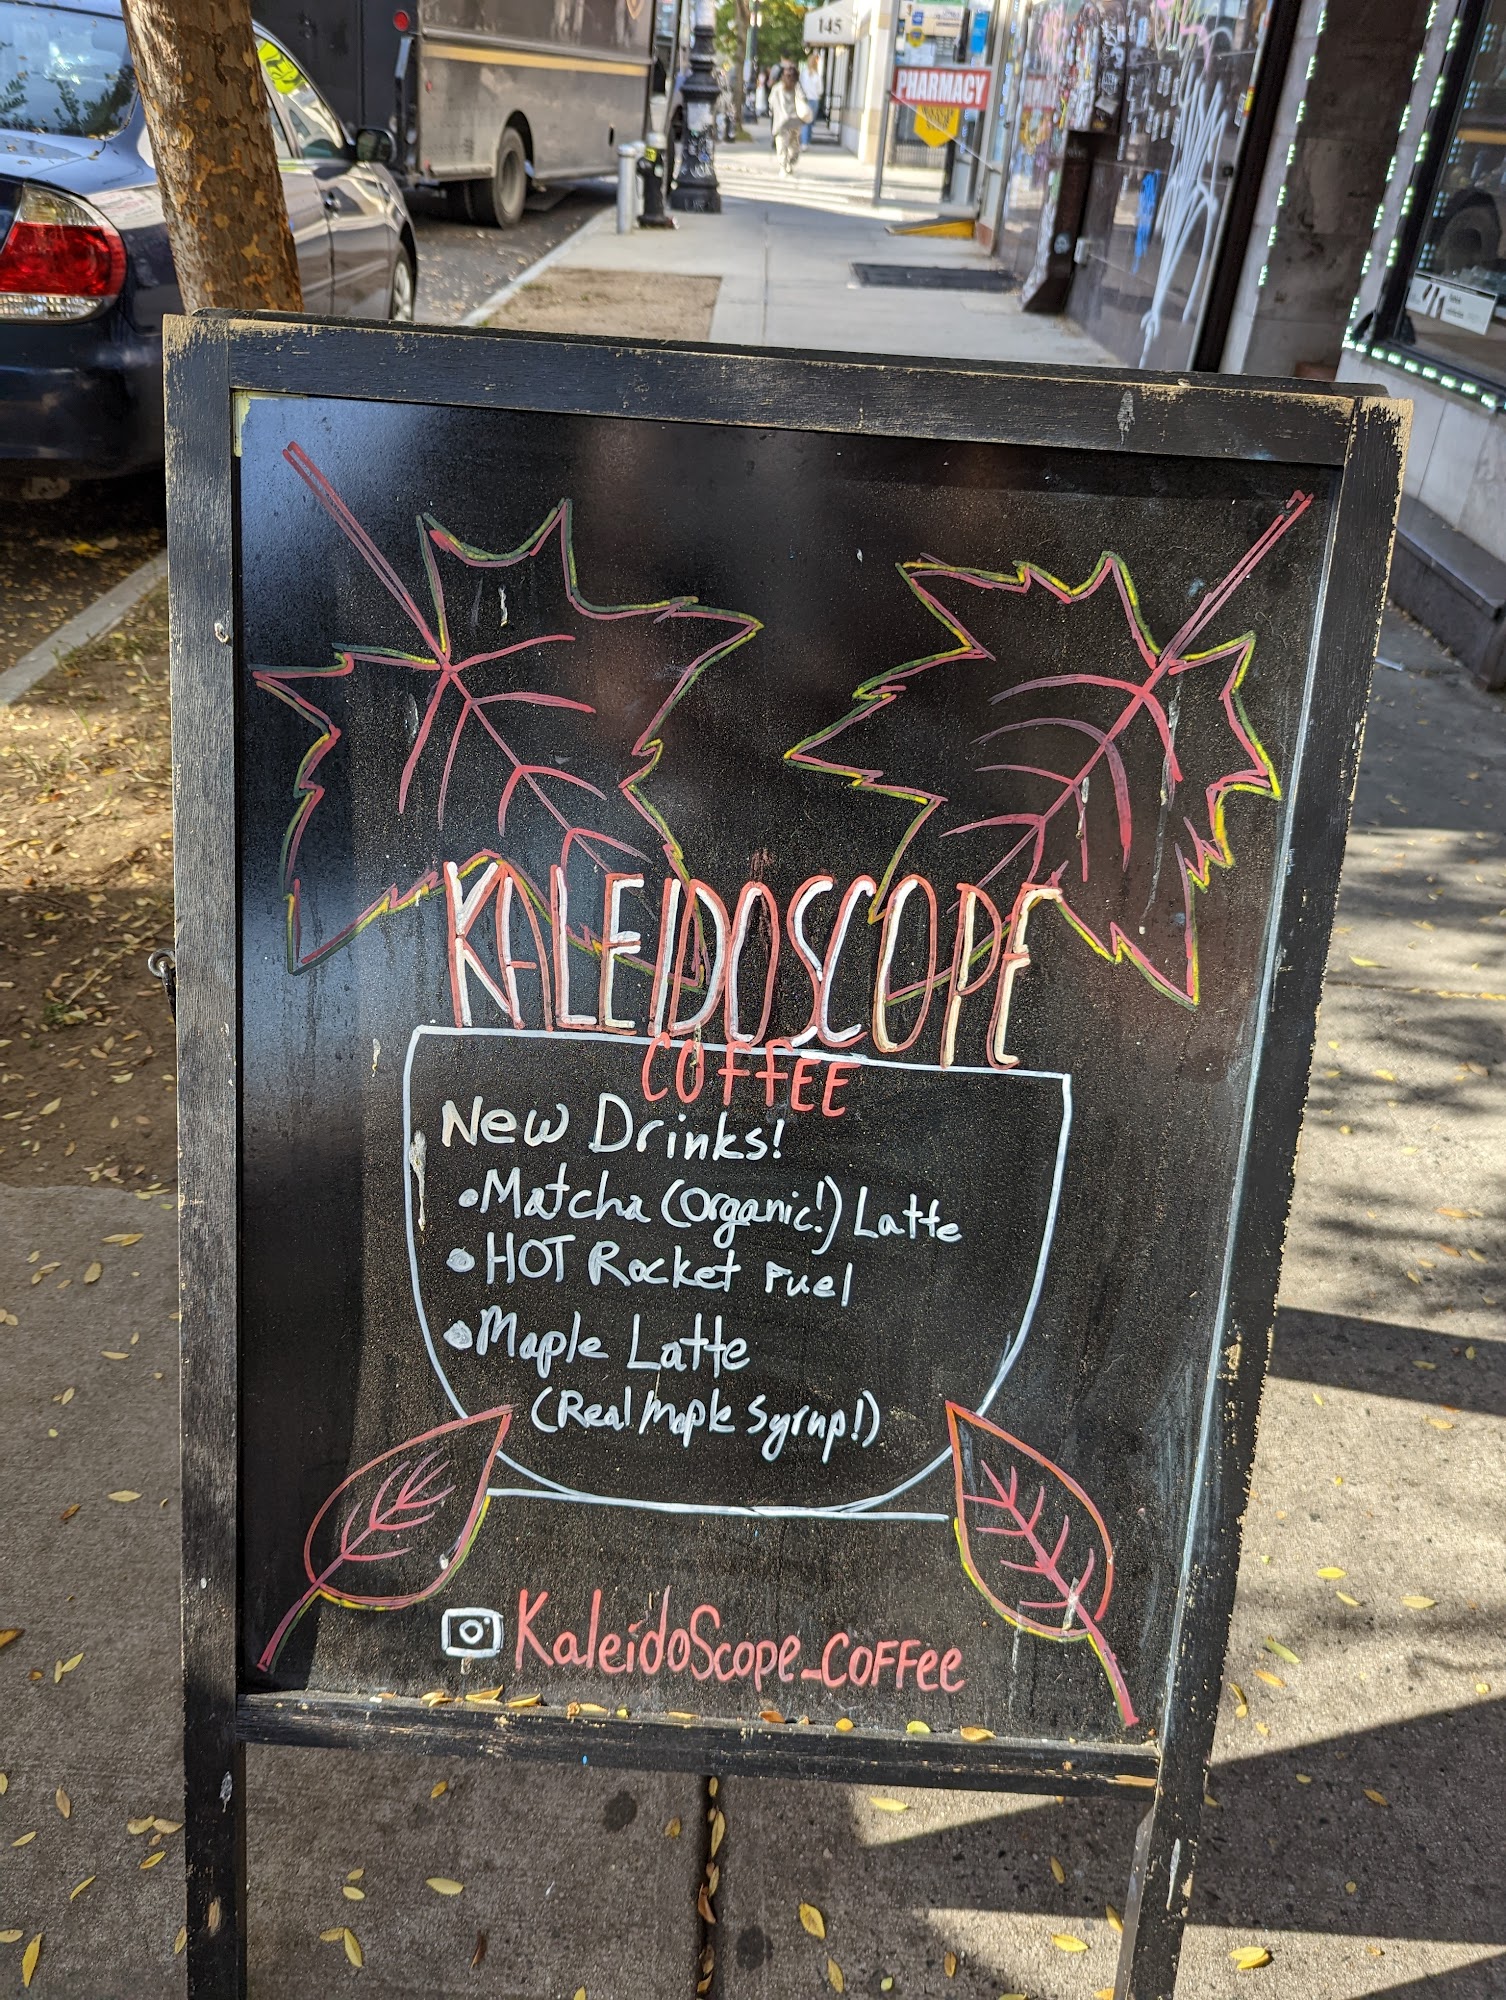 145
PHARMACY
KALEIDOSCOPE
COFFEE
New Drinks!
• Matcha (Organic!) Latte
• HOT Rocket Fuel
• Maple Latte
(Real Maple Syrup!)
KaleidoScope_COFFee